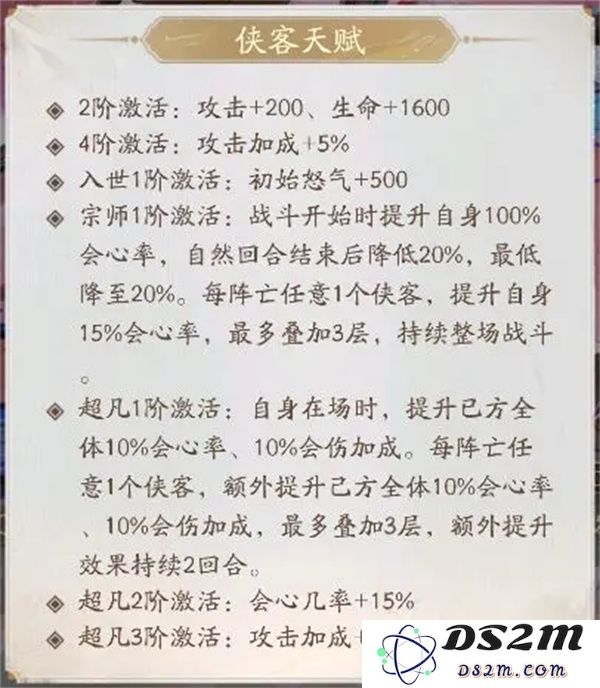 侠客天赋
2阶激活：攻击+200、生命+1600
4阶激活：攻击加成+5%
入世1阶激活：初始怒气+500
宗师1阶激活：战斗开始时提升自身100%
会心率，自然回合结束后降低20%，最低
降至20%。每阵亡任意1个侠客，提升自身
15%会心率，最多叠加3层，持续整场战斗
。
超凡1阶激活：自身在场时，提升己方全
体10%会心率、10%会伤加成。每阵亡任
意1个侠客，额外提升己方全体10%会心率
、10%会伤加成，最多叠加3层，额外提升
效果持续2回合。
超凡2阶激活：会心几率+15%
超凡3阶激活：攻击加成+
DS2m
DS2m.com